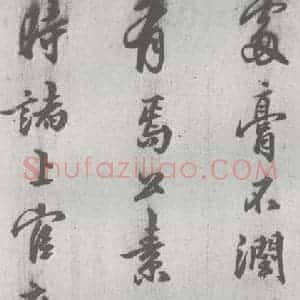 處膏不潤
有焉公素
時諸上官
Shufaziliao.COM